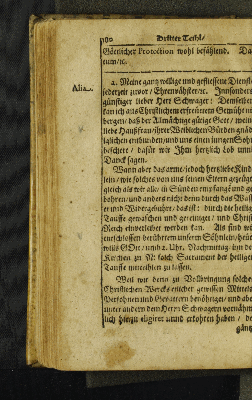 Dritter Theil/
Göttlicher Protection wohl befählend. Da-
tum/ꝛc.
Alia.
2. Meine gantz willige und geflissene Dienste
jederzeit zuvor / Ehrenvähster/ꝛc. Insonders
günstiger lieber Herr Schwager; Demselben
kan ich aus Christlichem erfreuetem Gemüthe
bergen / daß der Allmächtige gütige Gott / meine
liebe Hausfrau / ihrer Weiblichen Bürden gnädig-
lichen entbunden / und uns einen jungen Sohn
bescheret / dafür wir Ihm hertzlich Lob und
Danck sagen.
Wann aber das arme / jedoch hertzliebe Kind-
lein / wie solches von uns seinen Eltern gezeuget
gleich als wir alle / in Sünden empfangen und ge-
bohren / und anders nicht denn durch das Wasser
er und Widergebuhrt / das ist: durch die heilige
Tauffe gewaschen und gereiniget / und Christi
Reich einverleibet werden kan. Als sind wir
entschlossen berührtem unserm Söhnlein / heute
wills Gott / um 2. Uhr Nachmittag / in der
Kirchen zu N. solch Sacrament der heiligen
Tauffe mittheilen zu lassen.
Weil wir denn zu Vollbringung solches
Christlichen Wercks etlicher gewissen Mittels-
Persohnen und Gevattern benöhtiget / und aber
unter andern dem Herrn Schwagern vornähm-
lich hierzu eligiret und erkohren haben / de-
gäntz-